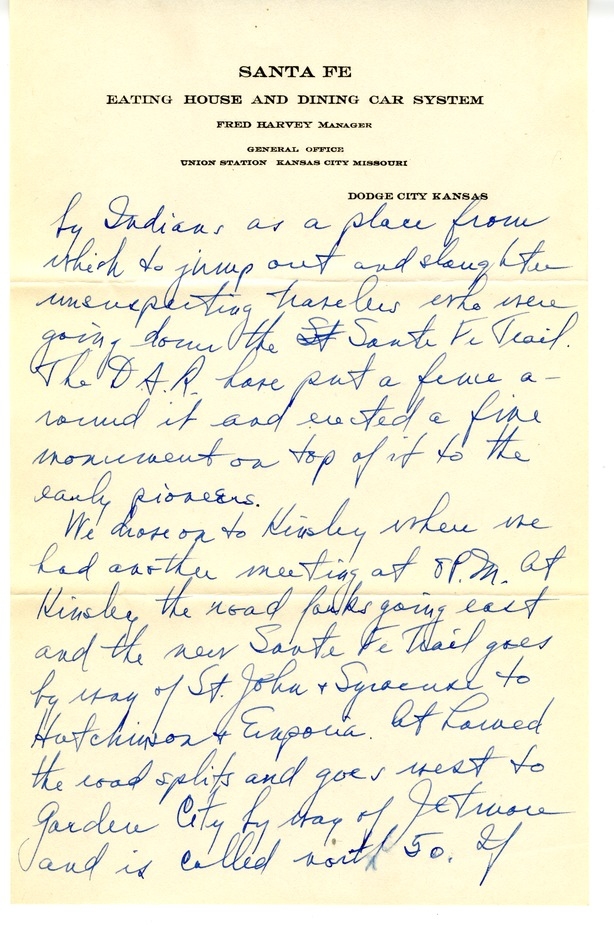 SANTA FE
EATING HOUSE AND DINING CAR SYSTEM
FRED HARVEY MANAGER
GENERAL OFFICE
UNION STATION KANSAS CITY MISSOURI
DODGE CITY KANSAS
by Indians as a place from
which to jump out and slaughter
unsuspecting travelers who were
going down the St Sante Fe Trail.
The D.A.R. have put a fence a-
round it and erected a fine
monument on top of it to the
early pioneers.
We drove on to Kinsley where we
had another meeting at 8 P.M. At
Kinsley the road forks going east
and the new Sante Fe Trail goes
by way of St. John & Syracuse to
Hutchinson & Emporia. At Larned
the road splits and goes west to
Garden City by way of Jetmore
and is called north 50. If